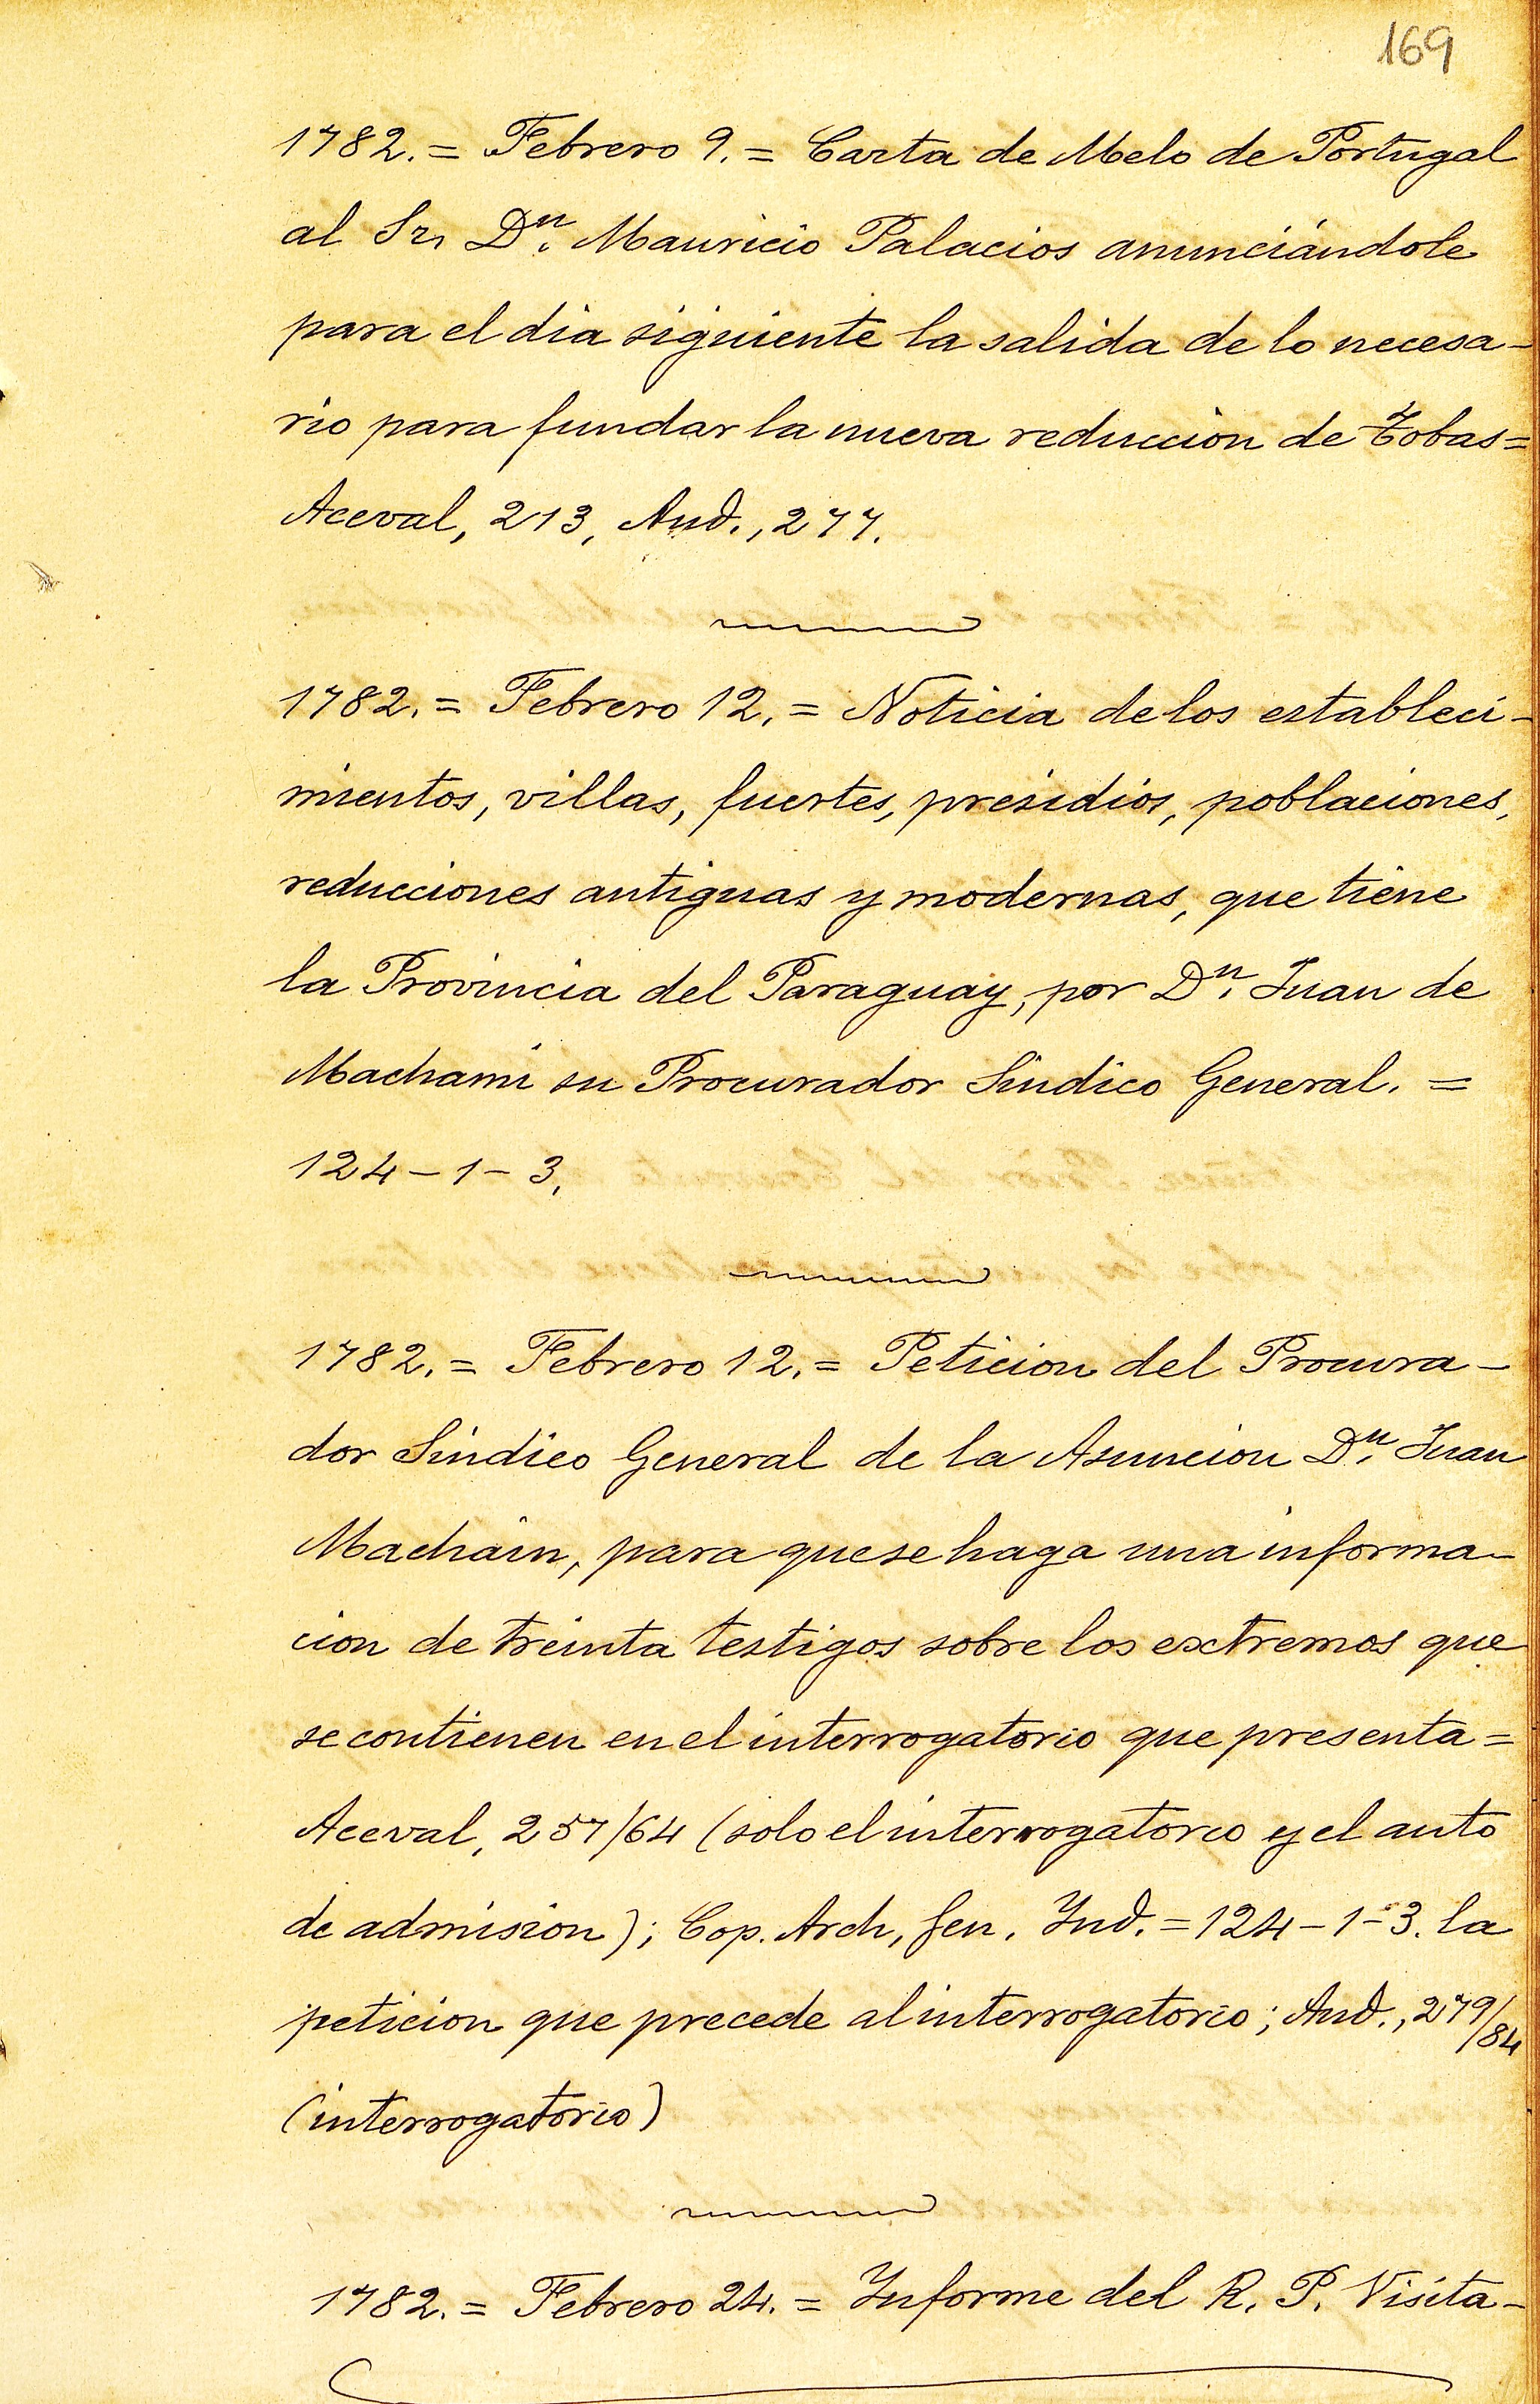 169
1782. = Febrero 9. = Carta de Melo de Portugal
al Sr. Dn. Mauricio Palacios anunciándole
para el dia siguiente la salida de lo necesa-
rio para fundar la nueva reduccion de Tobas =
Aceval, 213, Aud., 277.
1782. = Febrero 12. = Noticia de los estableci-
mientos, villas, fuertes, presidios, poblaciones,
reducciones antiguas y modernas, que tiene
la Provincia del Paraguay, por Dn. Juan de
Machami su Procurador Sindico General. =
124-1-3.
1782. = Febrero 12. = Peticion del Procura-
dor Sindico General de la Asuncion Dn. Juan
Machain, para que se haga una informa-
cion de treinta testigos sobre los extremos que
se contienen en el interrogatorio que presenta =
Aceval, 257/64 (solo el interrogatorio y el auto
de admision); Cop. Arch, Gen. Ind. = 124-1-3. la
peticion que precede al interrogatorio; Aud., 279/84
(interrogatorio)
1782. = Febrero 24. = Informe del R. P. Visita-